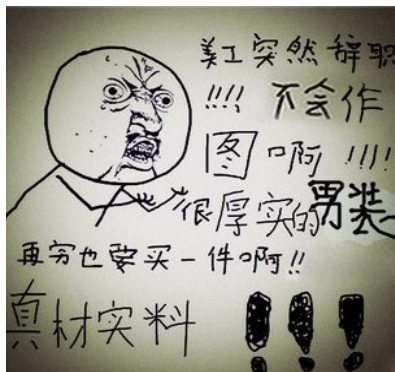 美工突然辞职
!!!! 不会作
图啊 !!!!
很厚实的男装
再穷也要买一件啊!!
真材实料 !!!